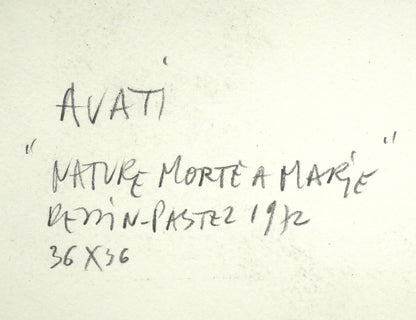 AVATI
"NATURE MORTE A MARIE"
DESSIN-PASTEL 1972
36X36